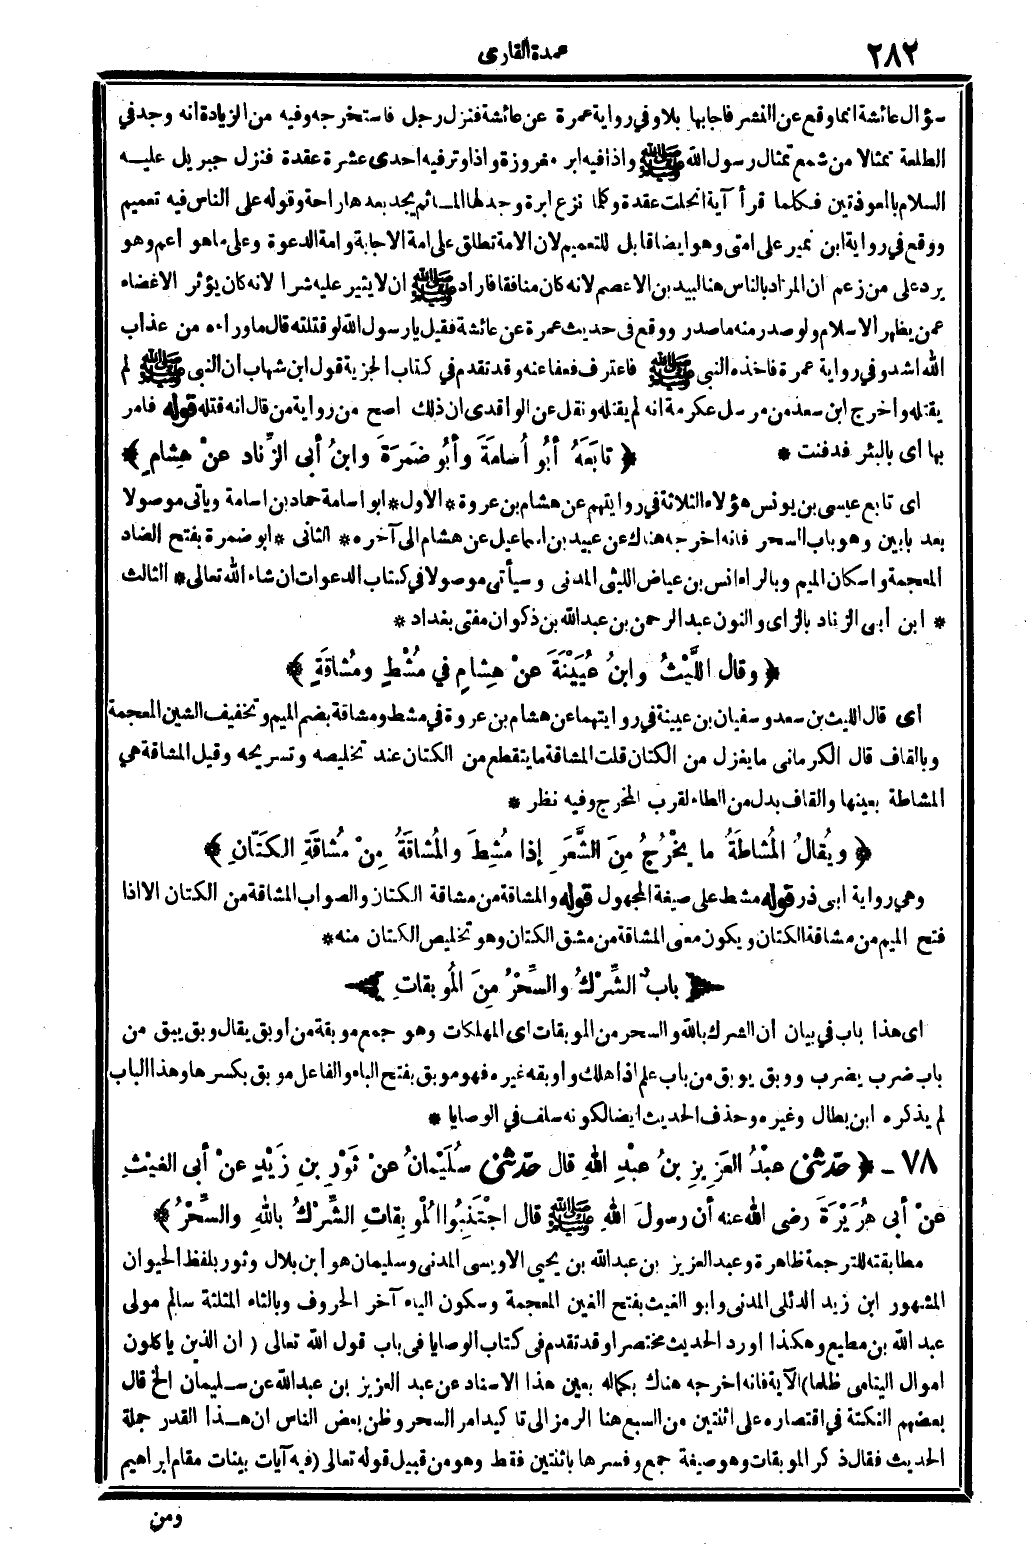 ٢٨٢
عمدة القارى
سؤال عائشة انما وقع عن النشر فاجابها بلا وفي رواية عمرة عن عائشة فنزل رجل فاستخرجه وفيه من الزيادة انه وجد في
الطلعة تمثالا من شمع تمثال رسول الله ﷺ واذا فيه ابر مغروزة واذا وتر فيه احدى عشرة عقدة فنزل جبريل عليه
السلام بالمعوذتين فكلما قرأ آية انحلت عقدة وكلما نزع ابرة وجد لها الما ثم يجد بعدها راحة وقوله على الناس فيه تعميم
ووقع في رواية ابن نمير على امتى وهو ايضا قابل للتعميم لان الامة تطلق على امة الاجابة وامة الدعوة وعلى ما هو اعم وهو
يرد على من زعم ان المراد بالناس هنا لبيد بن الاعصم لانه كان منافقا فاراد ﷺ ان لا يثير عليه شرا لانه كان يؤثر الاغضاء
عمن يظهر الاسلام ولو صدر منه ما صدر ووقع فى حديث عمرة عن عائشة فقيل يا رسول الله لو قتلته قال ما وراءه من عذاب
الله اشد وفي رواية عمرة فاخذه النبى ﷺ فاعترف فعفا عنه وقد تقدم في كتاب الجزية قول ابن شهاب أن النبى ﷺ لم
يقتله واخرج ابن سعد من مرسل عكرمة انه لم يقتله ونقل عن الواقدى ان ذلك اصح من رواية من قال انه قتله قوله فامر
بها أى بالبئر فدفنت * ﴿ تابَعَهُ أبُو أُسامَةَ وأبُو ضَمْرَةَ وابنُ أبى الزِّناد عنْ هِشامٍ ﴾
اى تابع عيسى بن يونس هؤلاء الثلاثة في روايتهم عن هشام بن عروة * الاول * ابو اسامة حماد بن اسامة ويأتى موصولا
بعد بابين وهو باب السحر فانه اخرجه هناك عن عبيد بن اسماعيل عن هشام الى آخره * الثانى * ابو ضمرة بفتح الضاد
المعجمة واسكان الميم وبالراء انس بن عياض الليثى المدنى وسيأتى موصولا في كتاب الدعوات ان شاء الله تعالى * الثالث
* ابن أبى الزناد بالزاى والنون عبد الرحمن بن عبد الله بن ذكوان مفتى بغداد *
﴿ وقال اللَّيْثُ وابنُ عُيَيْنَةَ عنْ هِشامٍ في مُشْطٍ ومُشاقَةٍ ﴾
أى قال الليث بن سعد وسفيان بن عيينة في روايتهما عن هشام بن عروة في مشط ومشاقة بضم الميم وتخفيف الشين المعجمة
وبالقاف قال الكرمانى ما يغزل من الكتان قلت المشاقة ما يتقطع من الكتان عند تخليصه وتسريحه وقيل المشاقة هي
المشاطة بعينها والقاف بدل من الطاء لقرب المخرج وفيه نظر *
﴿ ويُقالُ المُشاطَةُ ما يَخْرُجُ مِنَ الشَّعَرِ إذا مُشِطَ والمُشاقَةُ مِنْ مُشاقَةِ الكَتَّانِ ﴾
وهي رواية ابى ذر قوله مشط على صيغة المجهول قوله والمشاقة من مشاقة الكتان والصواب المشاقة من الكتان الا اذا
فتح الميم من مشاقة الكتان ويكون معنى المشاقة من مشق الكتان وهو تخليص الكتان منه *
﴿ بابٌ الشِّرْكُ والسِّحْرُ مِنَ المُوبِقاتِ ﴾
اى هذا باب في بيان أن الشرك بالله والسحر من الموبقات اى المهلكات وهو جمع موبقة من أوبق يقال وبق يبق من
باب ضرب يضرب ووبق يوبق من باب علم اذا هلك وأوبقه غيره فهو موبق بفتح الباء والفاعل موبق بكسرها وهذا الباب
لم يذكره ابن بطال وغيره وحذف الحديث ايضا لكونه سلف في الوصايا *
٧٨ - ﴿ حدّثنى عبْدُ العَزِيزِ بنُ عبْدِ اللهِ قال حدّثنى سُلَيْمانُ عنْ ثَوْرِ بنِ زَيْدٍ عنْ أبى الغَيْثِ
عنْ أبى هُرَيْرَةَ رضى الله عنه أن رسولَ اللهِ ﷺ قال اجْتَنِبُوا المُوبِقاتِ الشِّرْكُ باللهِ والسِّحْرُ ﴾
مطابقته للترجمة ظاهرة وعبد العزيز بن عبد الله بن يحيى الاويسى المدنى وسليمان هو ابن بلال وثور بلفظ الحيوان
المشهور ابن زيد الدئلى المدنى وابو الغيث بفتح الغين المعجمة وسكون الياء آخر الحروف وبالثاء المثلثة سالم مولى
عبد الله بن مطيع وهكذا اورد الحديث مختصرا وقد تقدم فى كتاب الوصايا فى باب قول الله تعالى ( ان الذين ياكلون
اموال اليتامى ظلما) الآية فانه اخرجه هناك بكماله بعين هذا الاسناد عن عبد العزيز بن عبد الله عن سليمان الخ قال
بعضهم النكتة في اقتصاره على اثنتين من السبع هنا الرمز الى تاكيد امر السحر وظن بعض الناس ان هذا القدر جملة
الحديث فقال ذكر الموبقات وهو صيغة جمع وفسرها باثنتين فقط وهو من قبيل قوله تعالى (فيه آيات بينات مقام ابراهيم
ومن